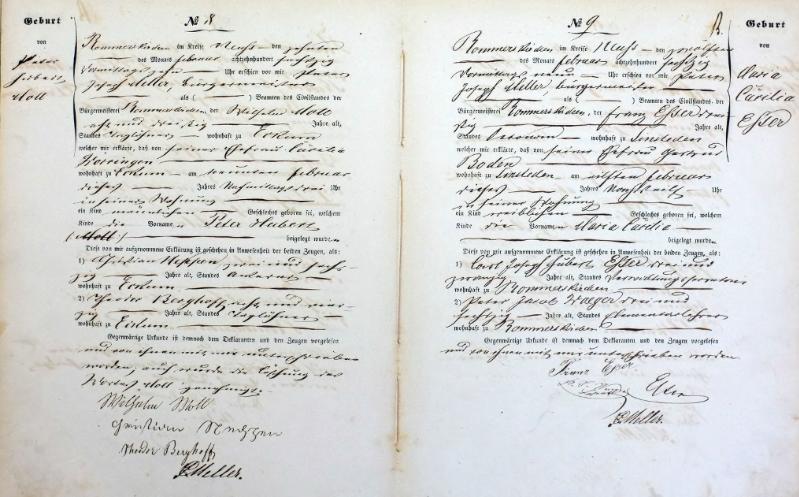 Geburt
von
Peter
Hubert
Moll
№ 8
Rommerskirchen im Kreise Neuss den zehnten
des Monats Februar achtzehnhundert sechszig
Vormittags zehn Uhr erschien vor mir Peter
Josef Meller, Bürgermeister
als ( ) Beamten des Civilstandes der
Bürgermeisterei Rommerskirchen der Wilhelm Moll
acht und dreißig Jahre alt,
Standes Taglöhner wohnhaft zu Eckum
welcher mir erklärte, daß von seiner Ehefrau Cäcilia
wohnhaft zu Eckum am neunten Februar
dieses Jahres Nachmittags drei Uhr
in seiner Wohnung
ein Kind männlichen Geschlechts geboren sei, welchem
Kinde die Vornamen Peter Hubert
(Moll) beigelegt wurden
Diese von mir aufgenommene Erklärung ist geschehen in Anwesenheit der beiden Zeugen, als:
1) Christian zwei und sechs-
zig Jahre alt, Standes Ackerer
wohnhaft zu Eckum
2) Theodor Berghoff, acht und vier-
zig Jahre alt, Standes Taglöhner
wohnhaft zu Eckum
Gegenwärtige Urkunde ist demnach dem Deklaranten und den Zeugen vorgelesen
und von ihnen mit mir unterschrieben
worden, auch wurde die Löschung des
Wortes Moll genehmigt.
Wilhelm Moll
Christian
Theodor Berghoff
Meller.
№ 9
Geburt
von
Maria
Cäcilia
Esser
Rommerskirchen im Kreise Neuss den zwölften
des Monats Februar achtzehnhundert sechszig
Vormittags neun Uhr erschien vor mir Peter
Josef Meller, Bürgermeister
als ( ) Beamten des Civilstandes der
Bürgermeisterei Rommerskirchen, der Franz Esser drei-
ßig Jahre alt,
Standes wohnhaft zu Sinsteden
welcher mir erklärte, daß von seiner Ehefrau Gertrud
Boden
wohnhaft zu Sinsteden, am elften Februar
dieses Jahres Uhr
in seiner Wohnung
ein Kind weiblichen Geschlechts geboren sei, welchem
Kinde die Vornamen Maria Cäcilia
beigelegt wurden
Diese von mir aufgenommene Erklärung ist geschehen in Anwesenheit der beiden Zeugen, als:
1) Josef Hubert Esser drei und
zwanzig Jahre alt, Standes Verwaltungssecretair
wohnhaft zu Rommerskirchen
2) Peter Jacob drei und
sechszig Jahre alt, Standes Elementarlehrer
wohnhaft zu Rommerskirchen
Gegenwärtige Urkunde ist demnach dem Deklaranten und den Zeugen vorgelesen
und von ihnen mit mir unterschrieben worden
Franz Esser
Esser
Meller.